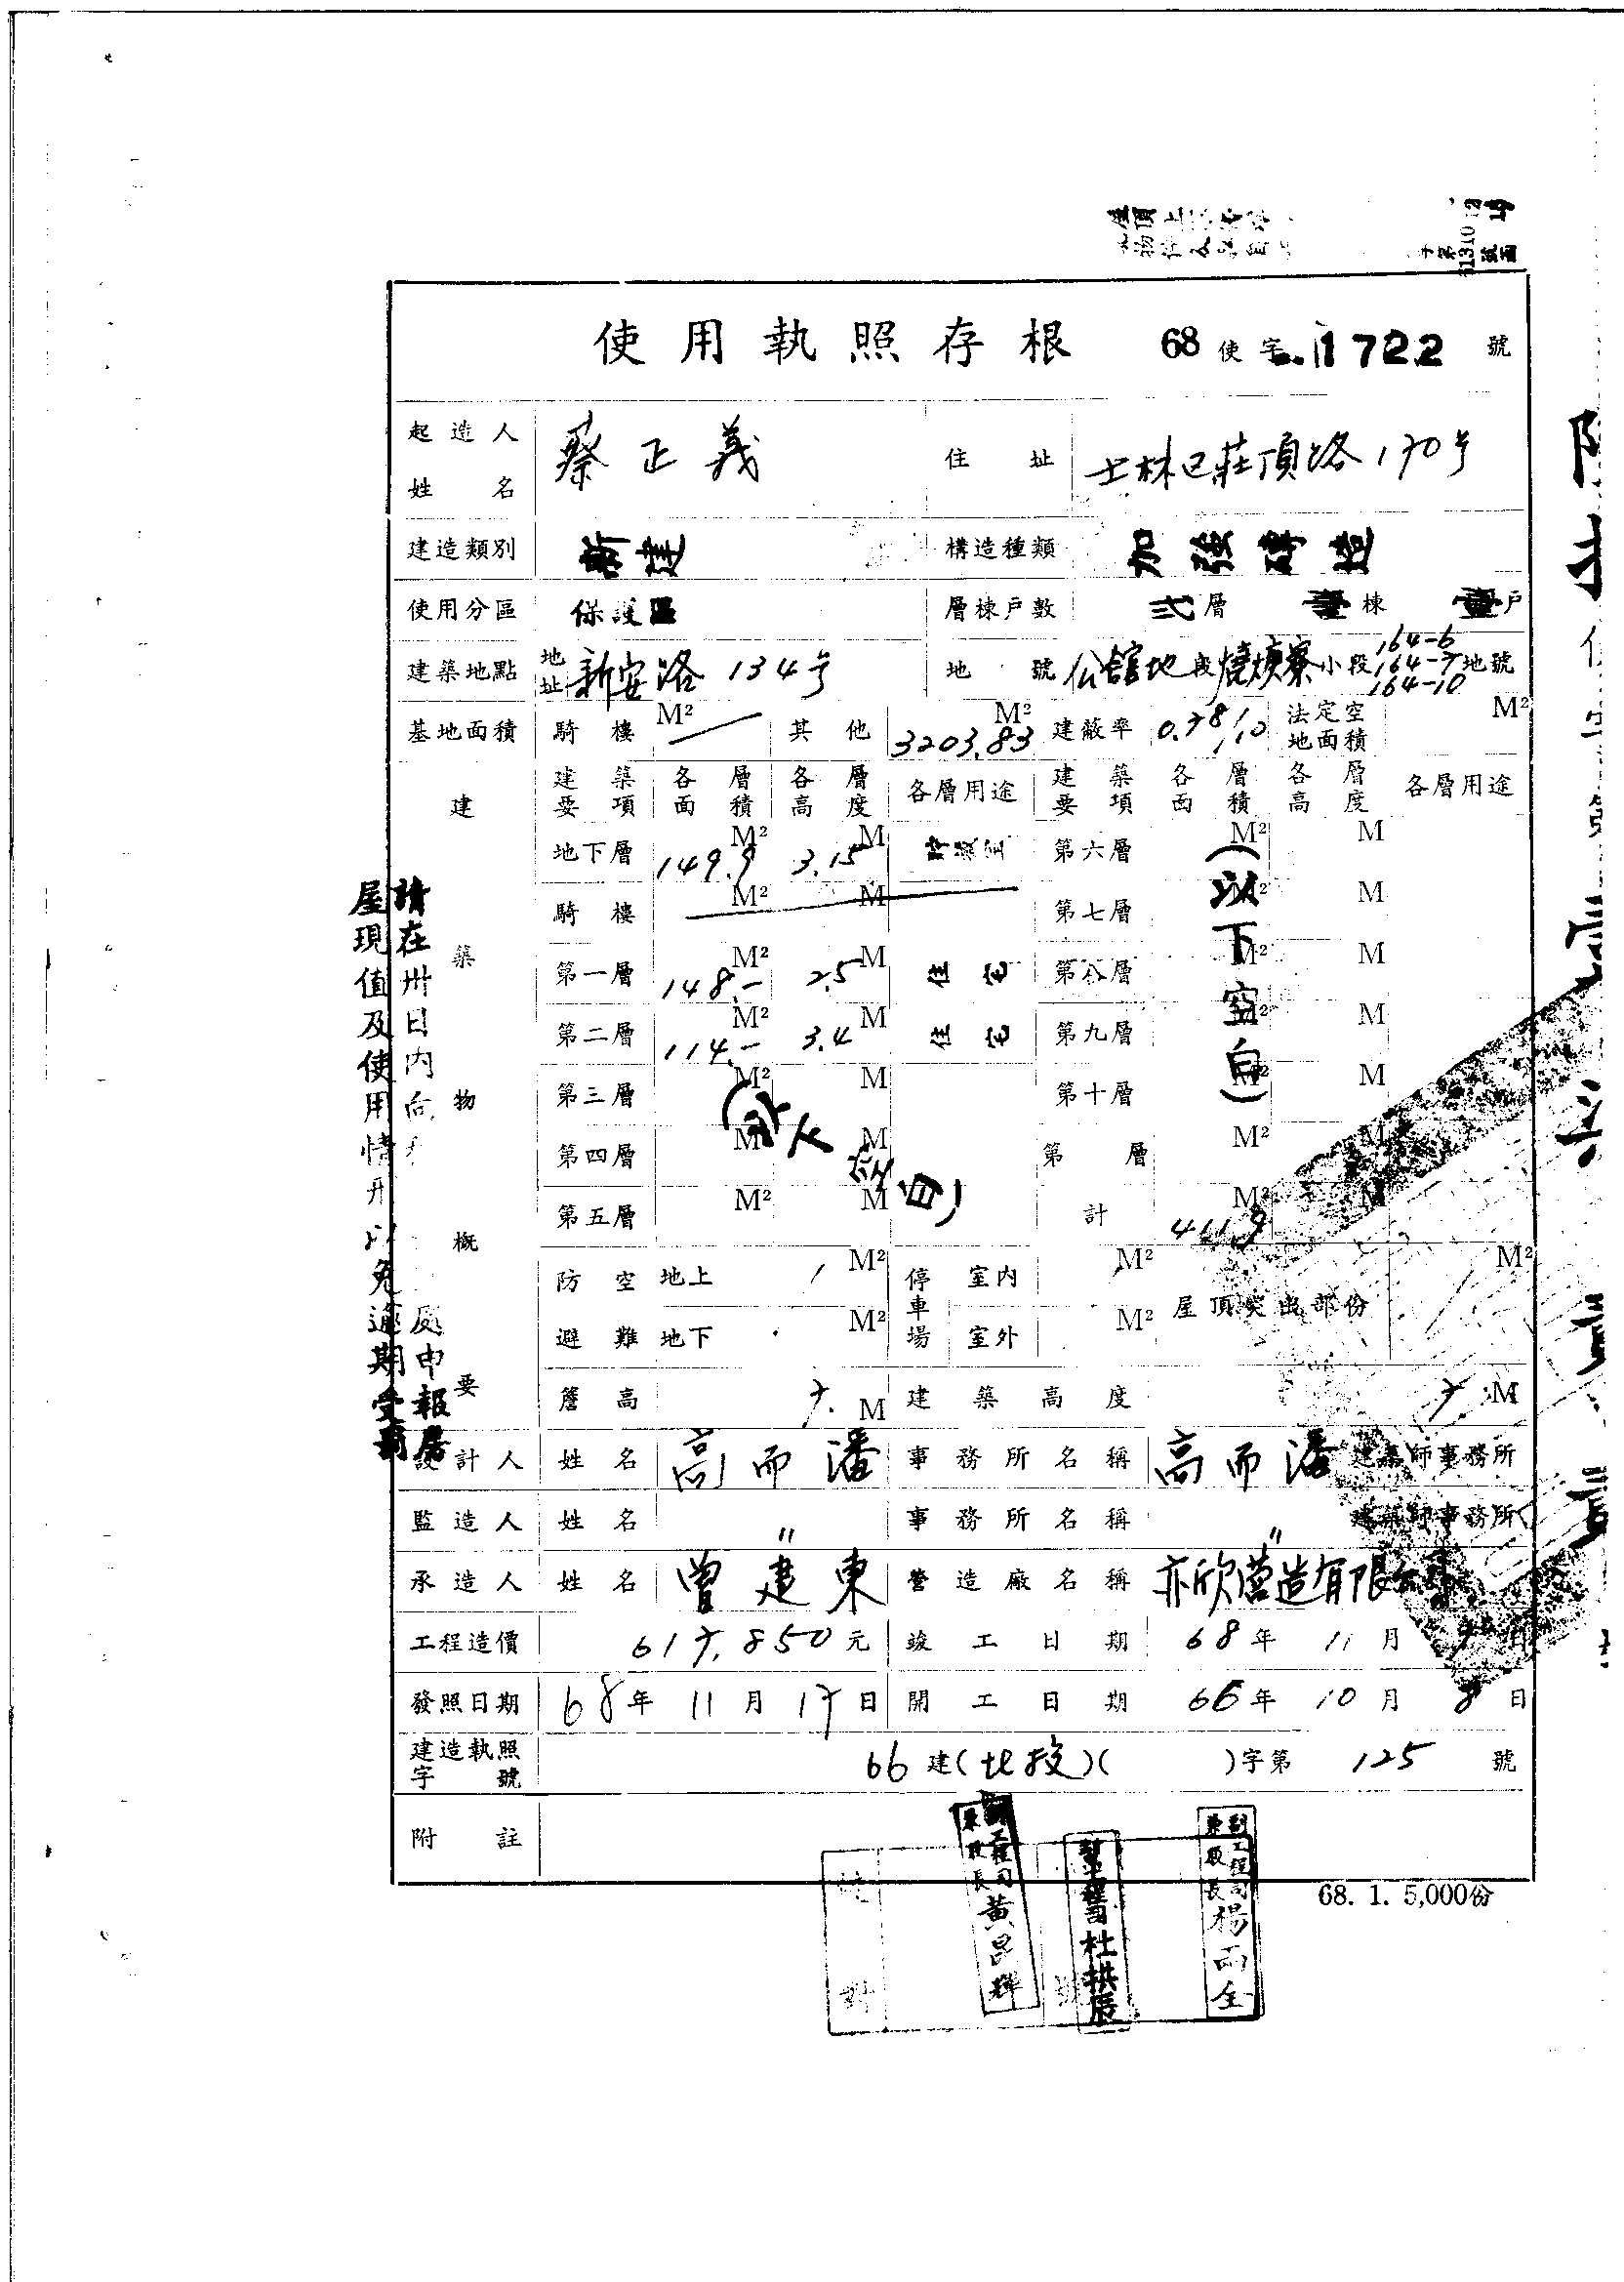 使用執照存根 68 使字 1722 號
起造人姓名 蔡正義 住址 士林區莊頂路170号
建造類別 新建 構造種類 加強磚造
使用分區 保護區 層棟戶數 弍層 壹棟 壹戶
建築地點 地址 新安路134号 地號 公館地段燒焿寮小段 164-6 164-7 164-10 地號
基地面積 騎樓 M² 其他 3203.83 M² 建蔽率 法定空地面積 M²
建築物概要
建築要項 各層面積 各層高度 各層用途 建築要項 各層面積 各層高度 各層用途
地下層 149.9 M² 3.15 M 第六層 M² M
騎樓 M² M 第七層 M² M
第一層 148.- M² 2.5 M 住宅 第八層 M² M
第二層 114.- M² 3.4 M 住宅 第九層 M² M
第三層 M² M 第十層 M² M
第四層 M² M 第 層 M² M
第五層 M² M 計 411.9 M² M
(以下空白)
(以下空白)
防空避難 地上 M² 停車場 室內 M² 屋頂突出部份 M²
地下 M² 室外 M²
簷高 7. M 建築高度 7 M
設計人 姓名 高而潘 事務所名稱 高而潘 建築師事務所
監造人 姓名 〃 事務所名稱 〃 建築師事務所
承造人 姓名 曾建東 營造廠名稱 亦欣營造有限公司
工程造價 617.850元 竣工日期 68年11月 日
發照日期 68年11月17日 開工日期 66年10月8日
建造執照字號 66建(北投)( )字第125號
附註
68. 1. 5,000份
請在卅日內向 處申報房
屋現值及使用情形以免逾期受罰
副工程司兼股長 黃昆輝
杜拱辰
副工程司兼股長 楊雨全